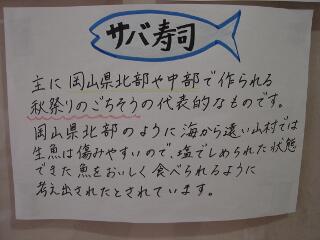 サバ寿司
主に岡山県北部や中部で作られる
秋祭りのごちそうの代表的なものです。
岡山県北部のように海から遠い山村では
生魚は傷みやすいので、塩でしめられた状態
できた魚をおいしく食べられるように
考え出されたとされています。